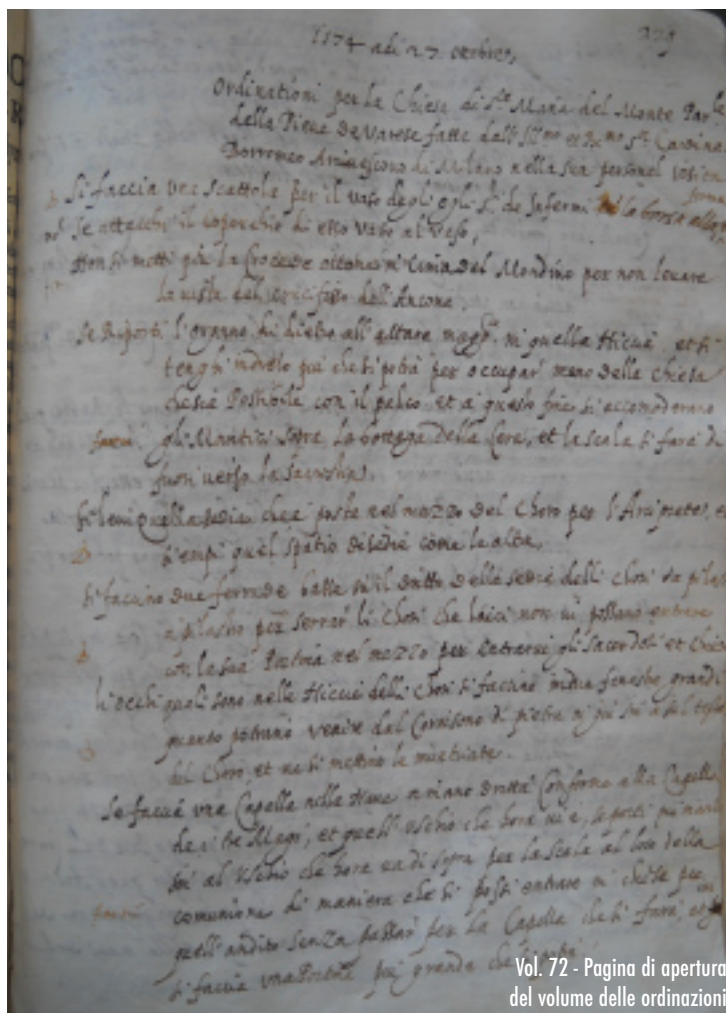 1574 adi 27 octobris,
279
Ordinationi per la Chiesa di S.ta Maria del Monte
della Pieve de Varese fatte dall' Ill.mo et R.mo S.r Cardinal
Borromeo Arcivescovo di Milano nella sua personal
Si faccia una scattola per il vaso degli ogli S.ti de Infermi
Se attacchi il coperchio di esso vaso al vaso,
Non si metti più la Croce de ottone in cima del per non levare
la vista del Crocifisso dell' Ancona.
Se Riporti l'organo di dietro all' altare magg.re in quella Niccia, et si
tenghi più che si potrà per occupar meno della chiesa
che sia Possibile con il palco, et a questo fine si accomoderano
gli Mantici sopra la bottega della Cera, et la scala si farà di
fuori verso la Sacristia.
Si levi quella sedia che è posta nel mezzo del Choro per l'Arciprete, et
s'empi quel spatio di sedie come le altre.
Si faccino due ferrade su il dritto delle sedie delli Chori da
a pilastro per serrar li Chori che laici non vi possano entrare
con la sua Portina nel mezzo per entrarvi gli Sacerdoti et
Li occhi quali sono nelle Niccie delli Chori si faccino fenestre grandi
quanto potrano venire dal Cornisono di pietra in più sin a
del Choro, et ne si mettino le invetriate.
Se faccia una Capella nella Nave a mano dritta Conforme alla Capella
de i tre Magi, et quell' uschio che hora vi è, se porti più
sin al Uschio che hora va di sopra per la scala al loco della
comunione di maniera che si possi entrare in chiesa per
quell' andito senza passar per la Capella che si farà, et
si faccia una Portina più grande che si potrà.
Vol. 72 - Pagina di apertura
del volume delle ordinazioni